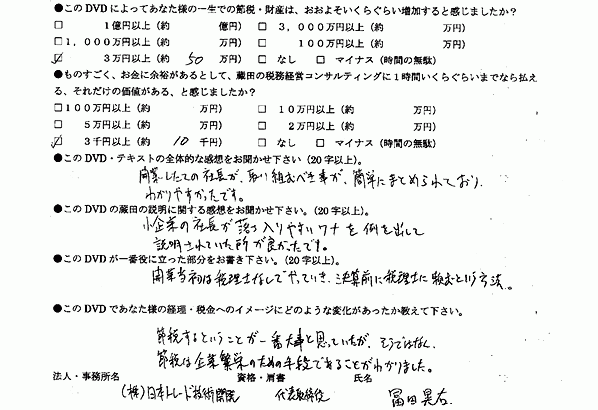 ●この DVD によってあなた様の一生での節税・財産は、おおよそいくらぐらい増加すると感じましたか？
□ １億円以上（約 億円） □ ３，０００万円以上（約 万円）
□１，０００万円以上（約 万円） □ １００万円以上（約 万円）
☑ ３万円以上（約 50 万円） □ なし □ マイナス（時間の無駄）
●ものすごく、お金に余裕があるとして、蔵田の税務経営コンサルティングに１時間いくらぐらいまでなら払え
る、それだけの価値がある、と感じましたか？
□１００万円以上（約 万円） □ １０万円以上（約 万円）
□ ５万円以上（約 万円） □ ２万円以上（約 万円）
☑ ３千円以上（約 10 千円） □ なし □ マイナス（時間の無駄）
●この DVD・テキストの全体的な感想をお聞かせ下さい（20 字以上）。
開業したての社長が、取り組むべき事が、簡単にまとめられており、
わかりやすかったです。
●この DVD の蔵田の説明に関する感想をお聞かせ下さい。（20 字以上）。
小企業の社長が落ち入りやすいワナを例を出して
説明されていた所が良かったです。
●この DVD が一番役に立った部分をお書き下さい。（20 字以上）。
開業当初は税理士なしでやっていき、決算前に税理士に頼むという方法。
●この DVD であなた様の経理・税金へのイメージにどのような変化があったか教えて下さい。
節税するということが一番大事と思っていたが、そうではなく、
節税は企業繁栄のための手段であることがわかりました。
法人・事務所名 資格・肩書 氏名
（株）日本トレード技術開発 代表取締役 冨田 晃右